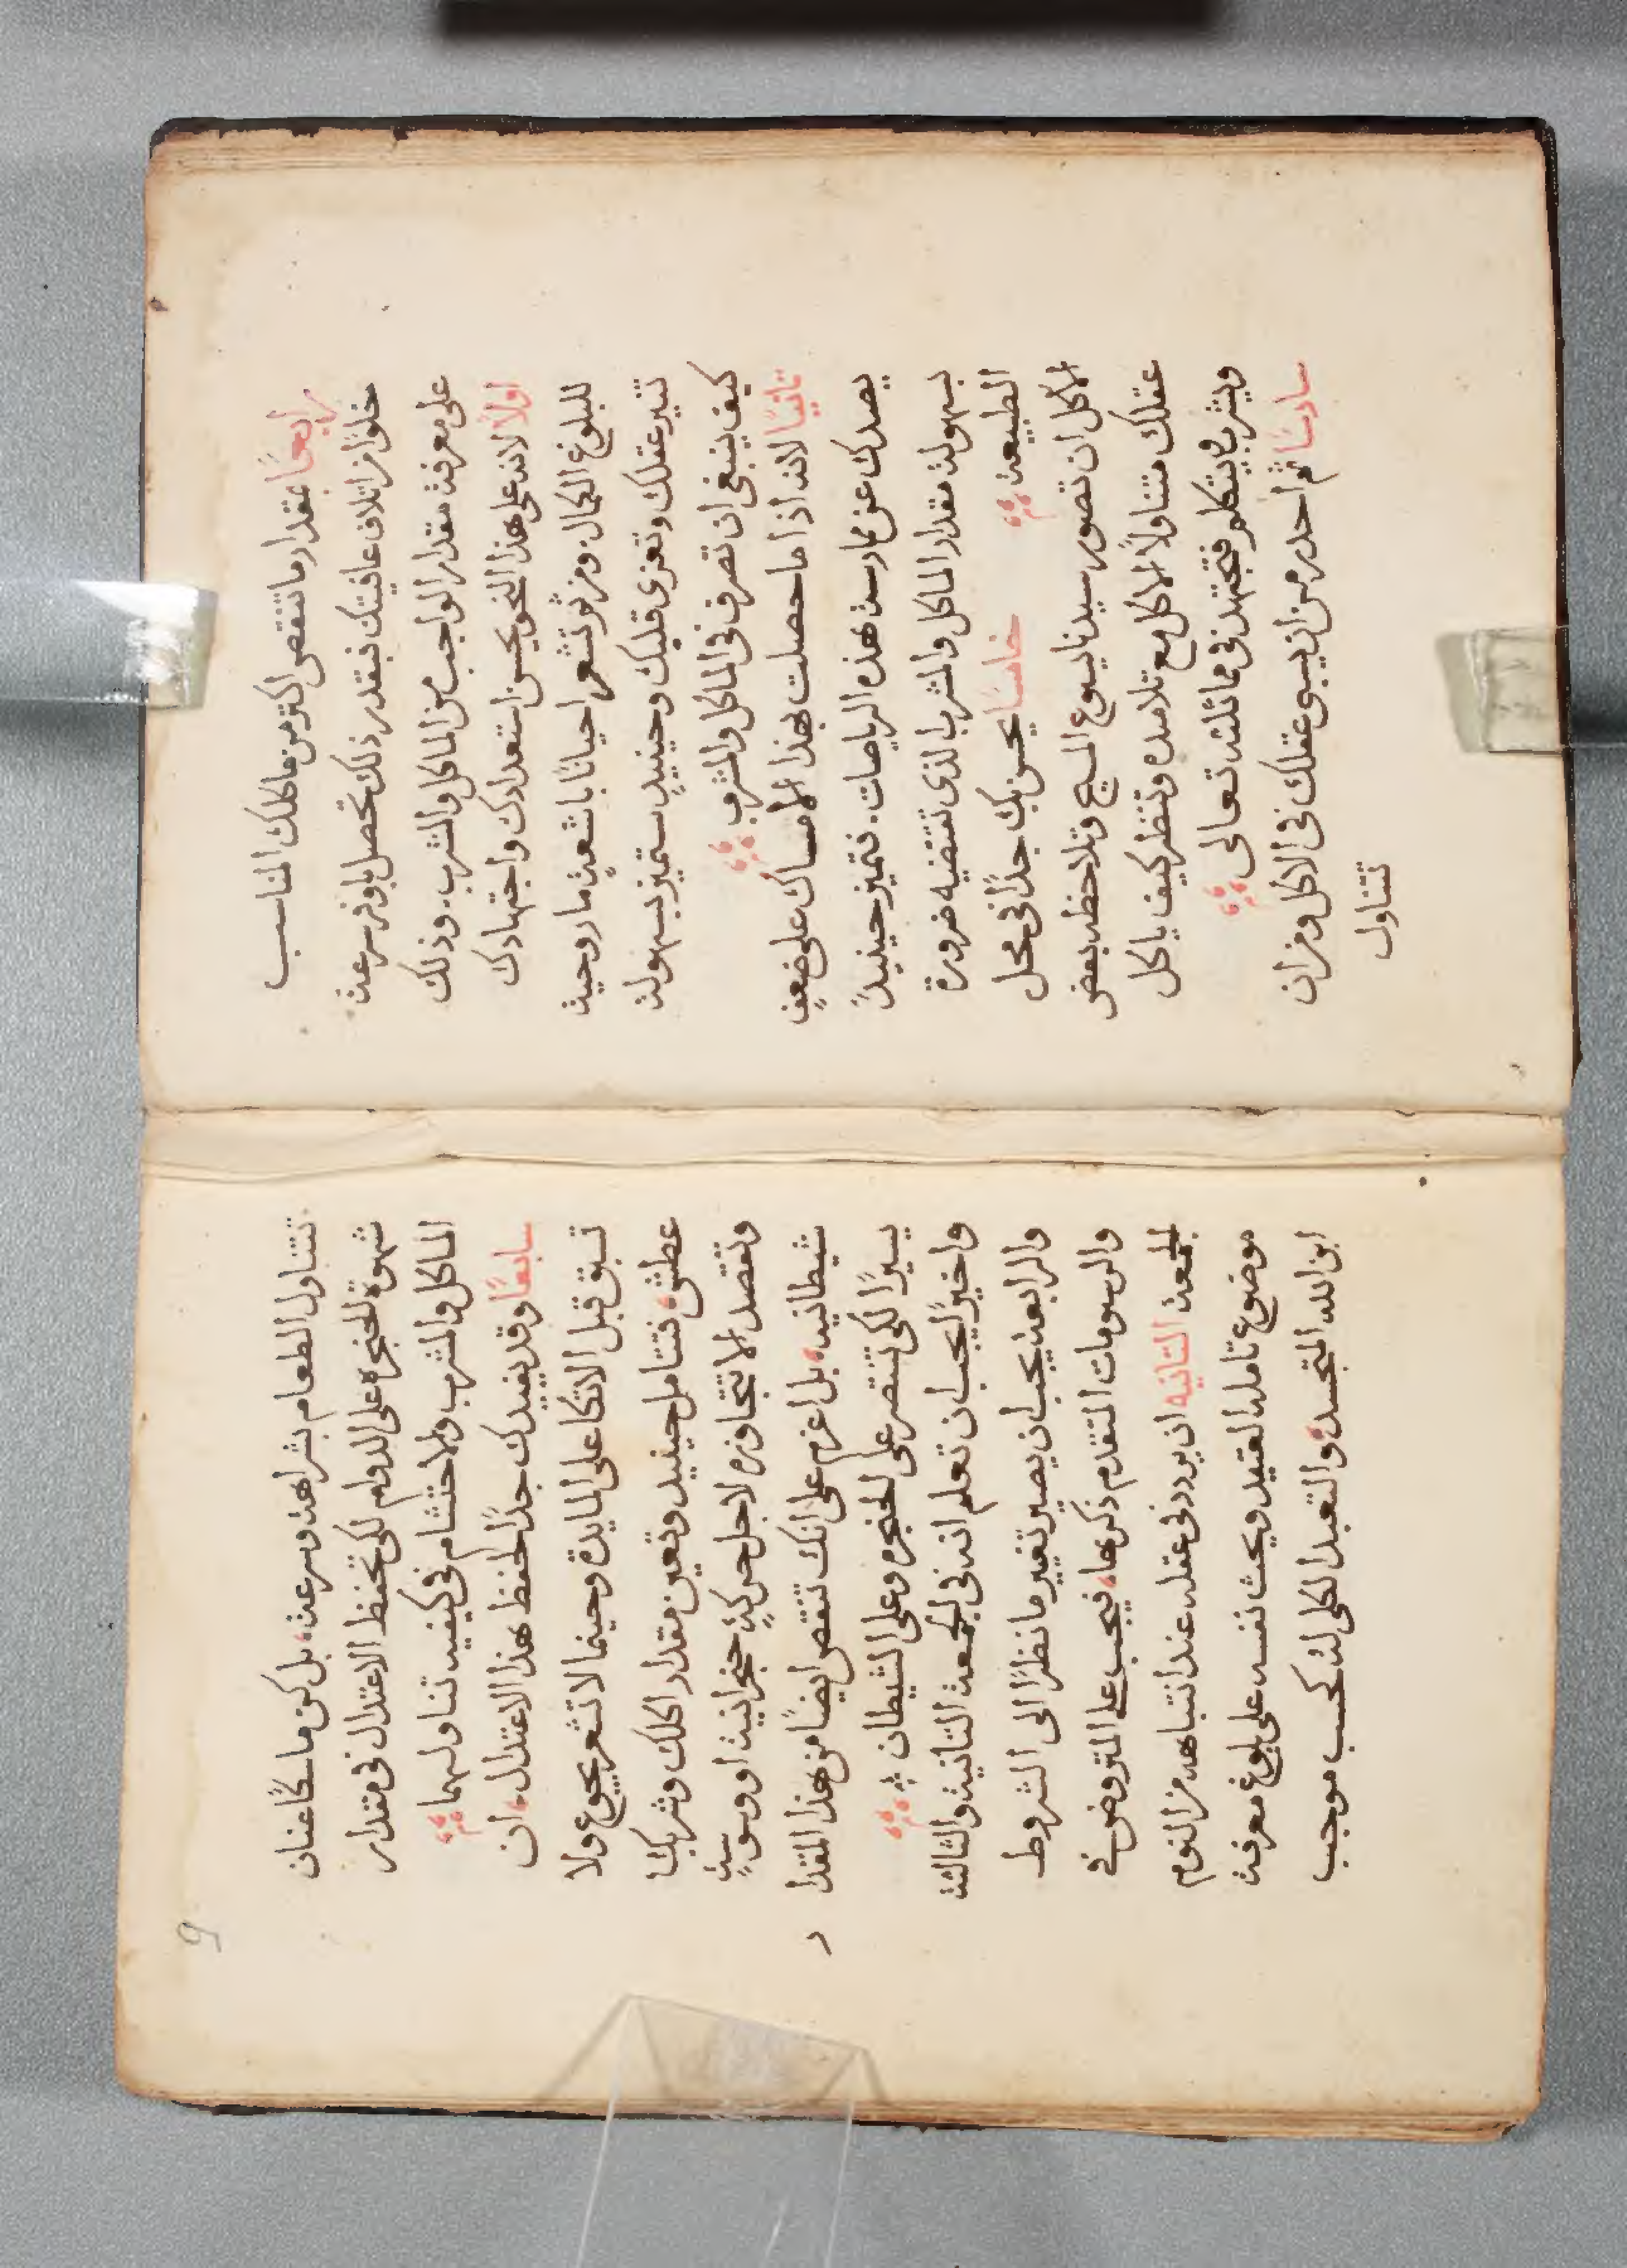 رابعًا بمقدار ما تنقص اكثر من ماكلك المناسب
خلوًا من اتلاف عافيتك فبقدر ذلك تحصل باوفر سرعة
على معرفة مقدار الواجب من الماكل والمشرب. وذلك
اولاً لانه على هذا النحو يحسن استعدادك واجتهادك
للبلوغ الكمال. ومن ثم تشعر احيانًا باشعةٍ ما روحية
تنير عقلك وتعزى قلبك وحينيدٍ ستميز بسهولة
كيف ينبغى ان تصرف فى الماكل والمشرب
ثانيًا لانه اذا ما حصلت بهذا الامساك على ضعفٍ
يصدك عن ممارسة هذه الرياضات. فتميز حينيدٍ
بسهولة مقدار الماكل والمشرب الذى تقتضيه ضرورة
الطبيعة خامسًا يحسن بك جدًا فى محل
الاكل ان تصور سيدنا يسوع المسيح وتلاحظه بعض
عقلك متناولاً الاكل مع تلامده وتنظر كيف ياكل
ويشرب ويتكلم فتجتهد فى مماثلته تعالى
سادسًا ثم احدر من ان يسبى عقلك فى الاكل ومن ان
تتناول
9
تتناول الطعام بشراهة وسرعة، بل كن ماسكًا عنان
شهوة الحنجرة على الدوام لكى تحفظ الاعتدال فى مقدار
الماكل والمشرب والاحتشام فى كيفية تناولهما
سابعًا وقد يفيدك جدًا لحفظ هذا الاعتدال، ان
تسبق قبل الاتكا على المايدة وحينما لا تشعر بجوع ولا
عطش، فتتامل حينيد وتعين مقدار اكلك وشربك
وتقصد الا تتجاوزه لاجل حركةٍ حنجرانية او وسوسةٍ
شيطانية، بل اعزم على انك تنقص ايضًا من هذا المقدا
ر
يسيرًا لكى تنتصر على الحنجرة وعلى الشيطان
واخيرًا يجب ان تعلم انه فى الجمعة الثانية والثالثة
والرابعة يجب ان يصير تغيير ما نظرًا الى الشروط
والرسومات المتقدم ذكرها، فيجب على المتروض فى
الجمعة الثانيه ان يردد فى عقله عند انتباهه من النوم
موضوع تامله العتيد ويحث نفسه على بلوغ معرفة
ابن الله المتجسد، والتعبد الكلى له بحسب موجب